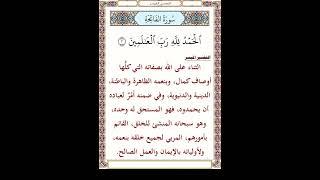 سُورَةُ الفَاتِحَةِ
ٱلۡحَمۡدُ لِلَّهِ رَبِّ ٱلۡعَٰلَمِينَ ٢
التفسير الميسر
الثناء على الله بصفاته التي كلُّها
أوصاف كمال، وبنعمه الظاهرة والباطنة،
الدينية والدنيوية، وفي ضمنه أَمْرٌ لعباده
أن يحمدوه، فهو المستحق له وحده،
وهو سبحانه المنشئ للخلق، القائم
بأمورهم، المربي لجميع خلقه بنعمه،
ولأوليائه بالإيمان والعمل الصالح.